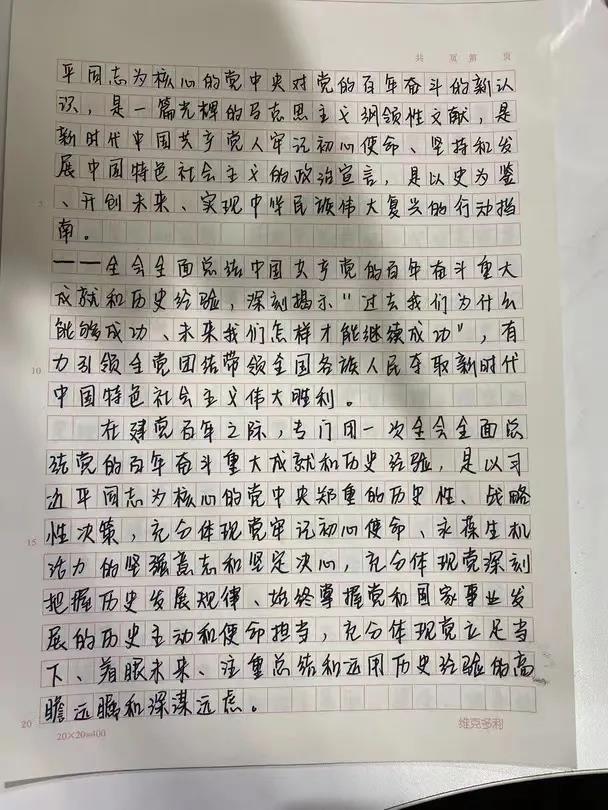 共 页 第 页
平同志为核心的党中央对党的百年奋斗的新认
识，是一篇光辉的马克思主义纲领性文献，是
新时代中国共产党人牢记初心使命、坚持和发
展中国特色社会主义的政治宣言，是以史为鉴
5、开创未来、实现中华民族伟大复兴的行动指
南。
——全会全面总结中国共产党的百年奋斗重大
成就和历史经验，深刻揭示“过去我们为什么
能够成功、未来我们怎样才能继续成功”，有
10 力引领全党团结带领全国各族人民夺取新时代
中国特色社会主义伟大胜利。
在建党百年之际，专门用一次全会全面总
结党的百年奋斗重大成就和历史经验，是以习
近平同志为核心的党中央郑重的历史性、战略
15 性决策，充分体现党牢记初心使命、永葆生机
活力的坚强意志和坚定决心，充分体现党深刻
把握历史发展规律、始终掌握党和国家事业发
展的历史主动和使命担当，充分体现党立足当
下、着眼未来、注重总结和运用历史经验的高
20 瞻远瞩和深谋远虑。
20×20=400
维克多利